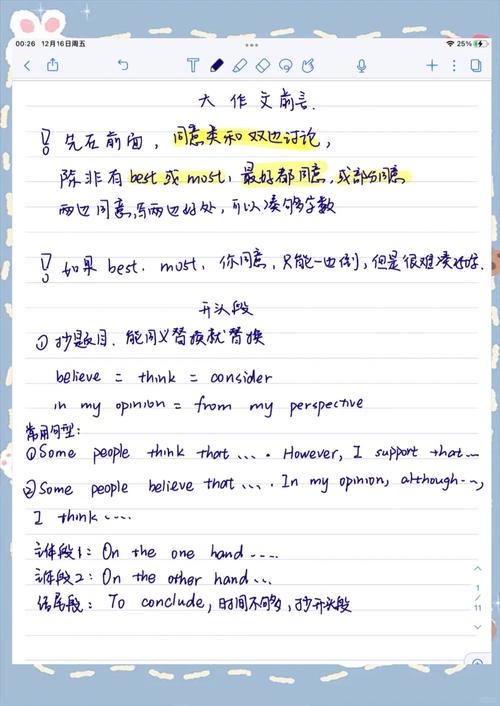 00:26 12月16日周五
25%
大作文前言.
! 先在前面，同意类和双边讨论，
除非有 best 或 most，最好都同意，或部分同意
两边同意，写两边好处，可以凑够字数
! 如果 best. most，你同意，只能一边倒，但是很难凑
开头段
① 抄题目. 能同义替换就替换
believe = think = consider
in my opinion = from my perspective
常用句型:
① Some people think that .... However, I support that...
② Some people believe that .... In my opinion, although...,
I think ....
主体段1: On the one hand ....
主体段2: On the other hand ...
结尾段: To conclude, 时间不够多, 抄开头段
1
/
11